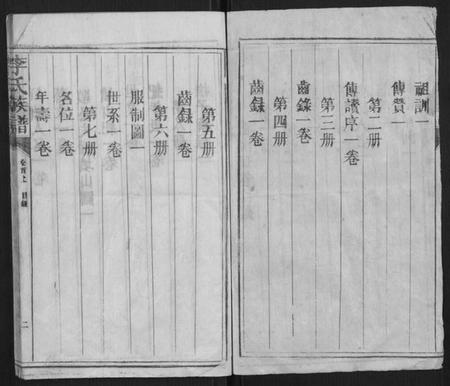 祖訓
傳贊一
第二册
傳讀序一卷
第三册
齒錄一卷
第四册
齒錄一卷
第五册
齒錄一卷
第六册
服制圖一
世系一卷
第七册
名位一卷
年壽一卷
李氏族譜
卷首上 目錄
二